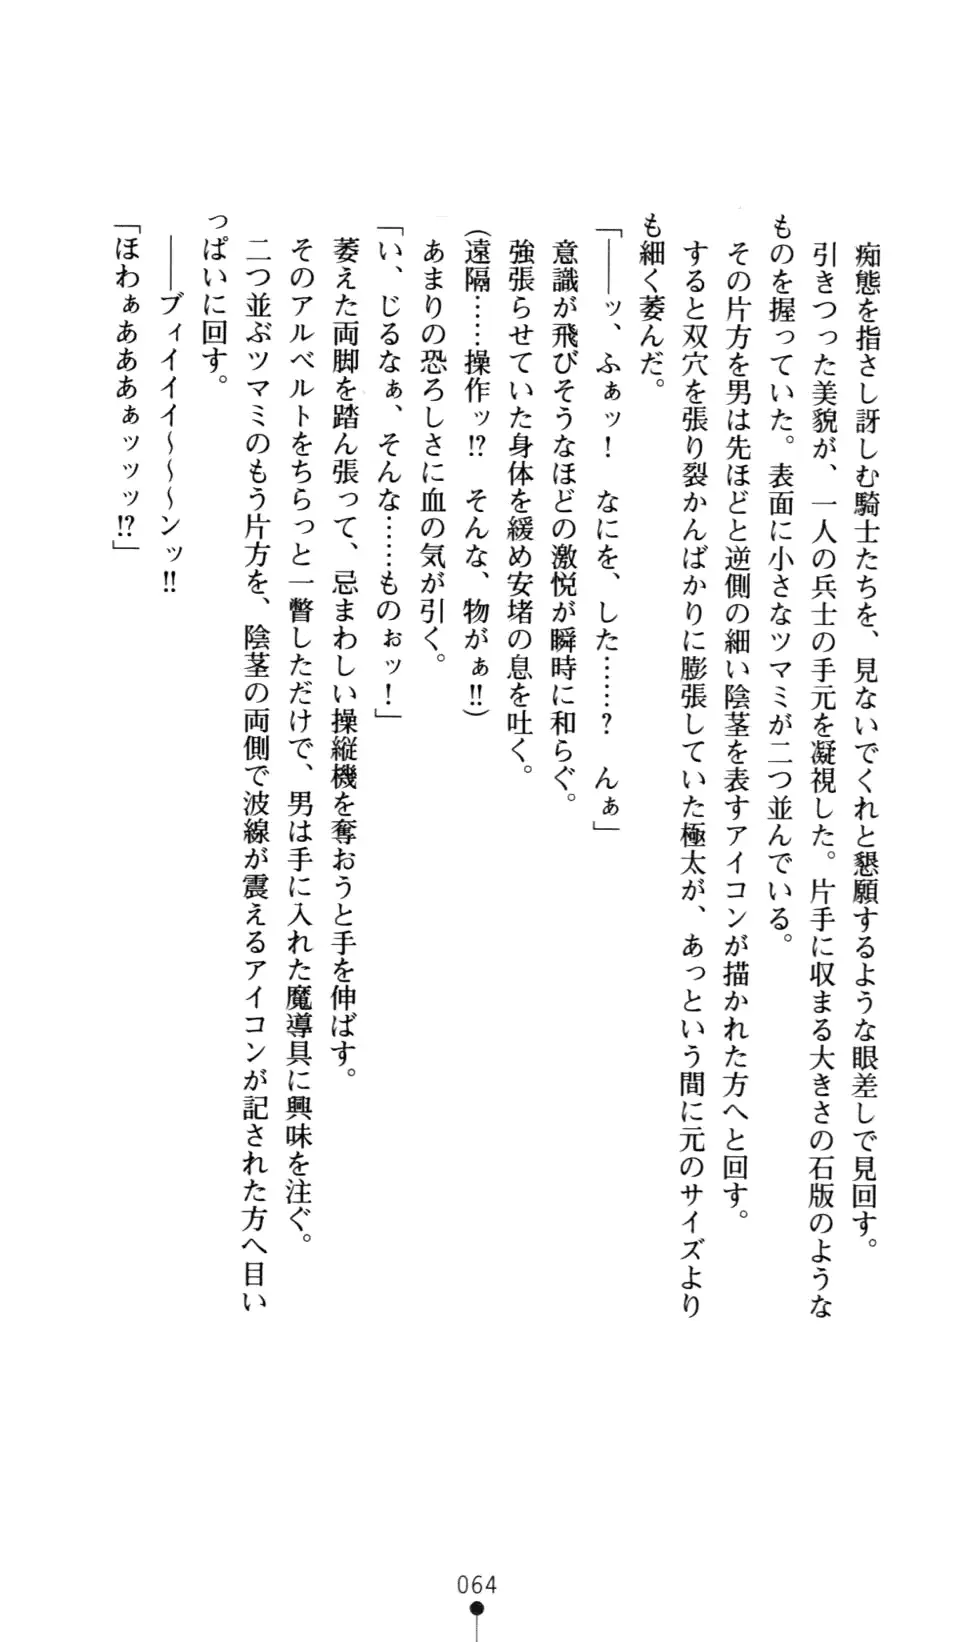 痴態を指さし訝しむ騎士たちを、見ないでくれと懇願するような眼差しで見回す。
引きつった美貌が、一人の兵士の手元を凝視した。片手に収まる大きさの石版のような
ものを握っていた。表面に小さなツマミが二つ並んでいる。
その片方を男は先ほどと逆側の細い陰茎を表すアイコンが描かれた方へと回す。
すると双穴を張り裂かんばかりに膨張していた極太が、あっという間に元のサイズより
も細く萎んだ。
「――ッ、ふぁッ！　なにを、した……？　んぁ」
意識が飛びそうなほどの激悦が瞬時に和らぐ。
強張らせていた身体を緩め安堵の息を吐く。
(遠隔……操作ッ!?　そんな、物がぁ!!)
あまりの恐ろしさに血の気が引く。
「い、じるなぁ、そんな……ものぉッ！」
萎えた両脚を踏ん張って、忌まわしい操縦機を奪おうと手を伸ばす。
そのアルベルトをちらっと一瞥しただけで、男は手に入れた魔導具に興味を注ぐ。
二つ並ぶツマミのもう片方を、陰茎の両側で波線が震えるアイコンが記された方へ目い
っぱいに回す。
――ブィイイイ～～～ンッ!!
「ほわぁあああぁッッッ!?」
064